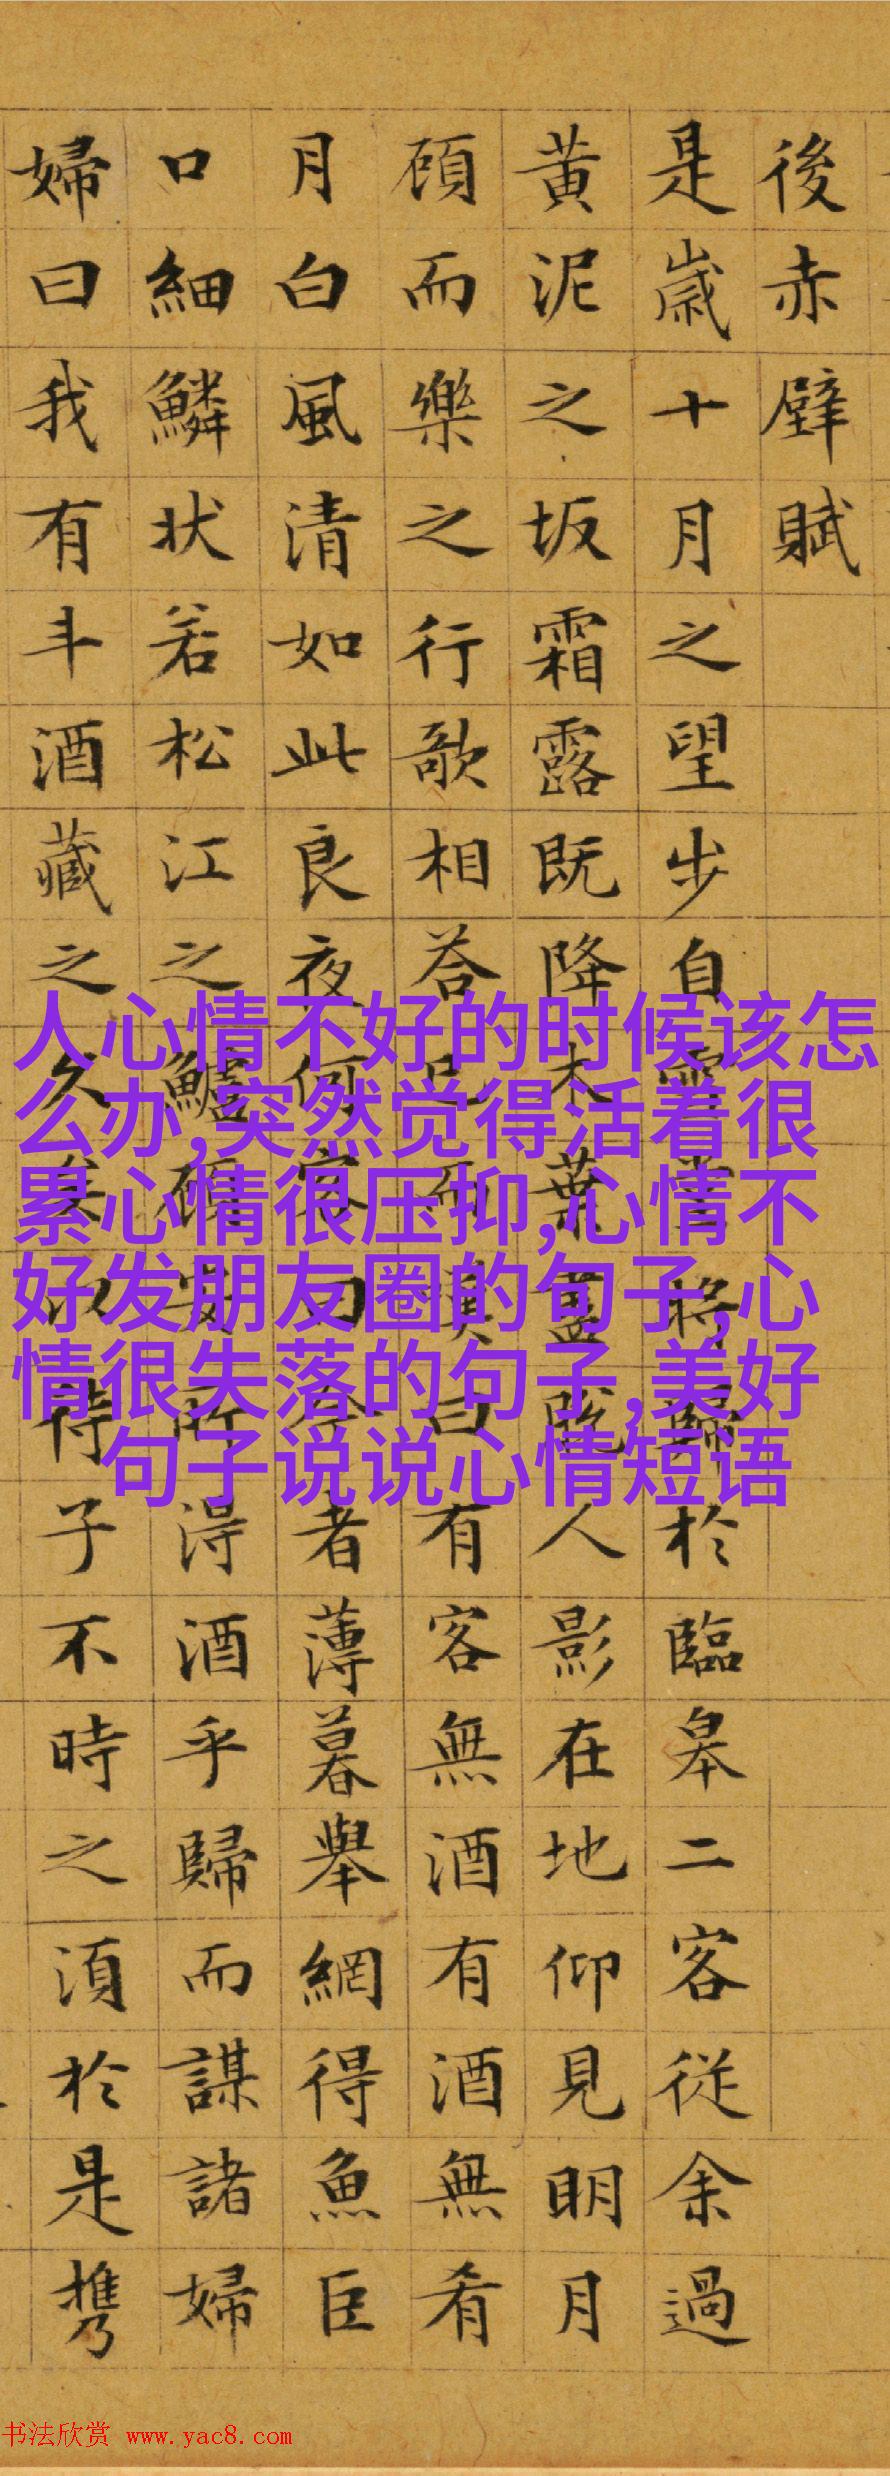 後赤壁賦
是歲十月之望步自雪堂將歸於臨皋二客從余過
黄泥之坂霜露既降木葉盡脫人影在地仰見明月
頋而樂之行歌相荅已而嘆曰有客無酒有酒無肴
月白風清如此良夜何客曰今者薄暮舉網得魚巨
口細鱗状若松江之鱸頋安所得酒乎歸而謀諸婦
婦曰我有斗酒藏之久矣以待子不時之須於是携
人心情不好的时候该怎
么办,突然觉得活着很
累心情很压抑,心情不
好发朋友圈的句子,心
情很失落的句子,美好
句子说说心情短语
书法欣赏 www.yac8.com